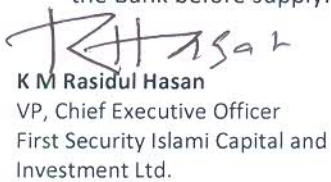 the Bank before supply.
RHasan
K M Rasidul Hasan
VP, Chief Executive Officer
First Security Islami Capital and
Investment Ltd.